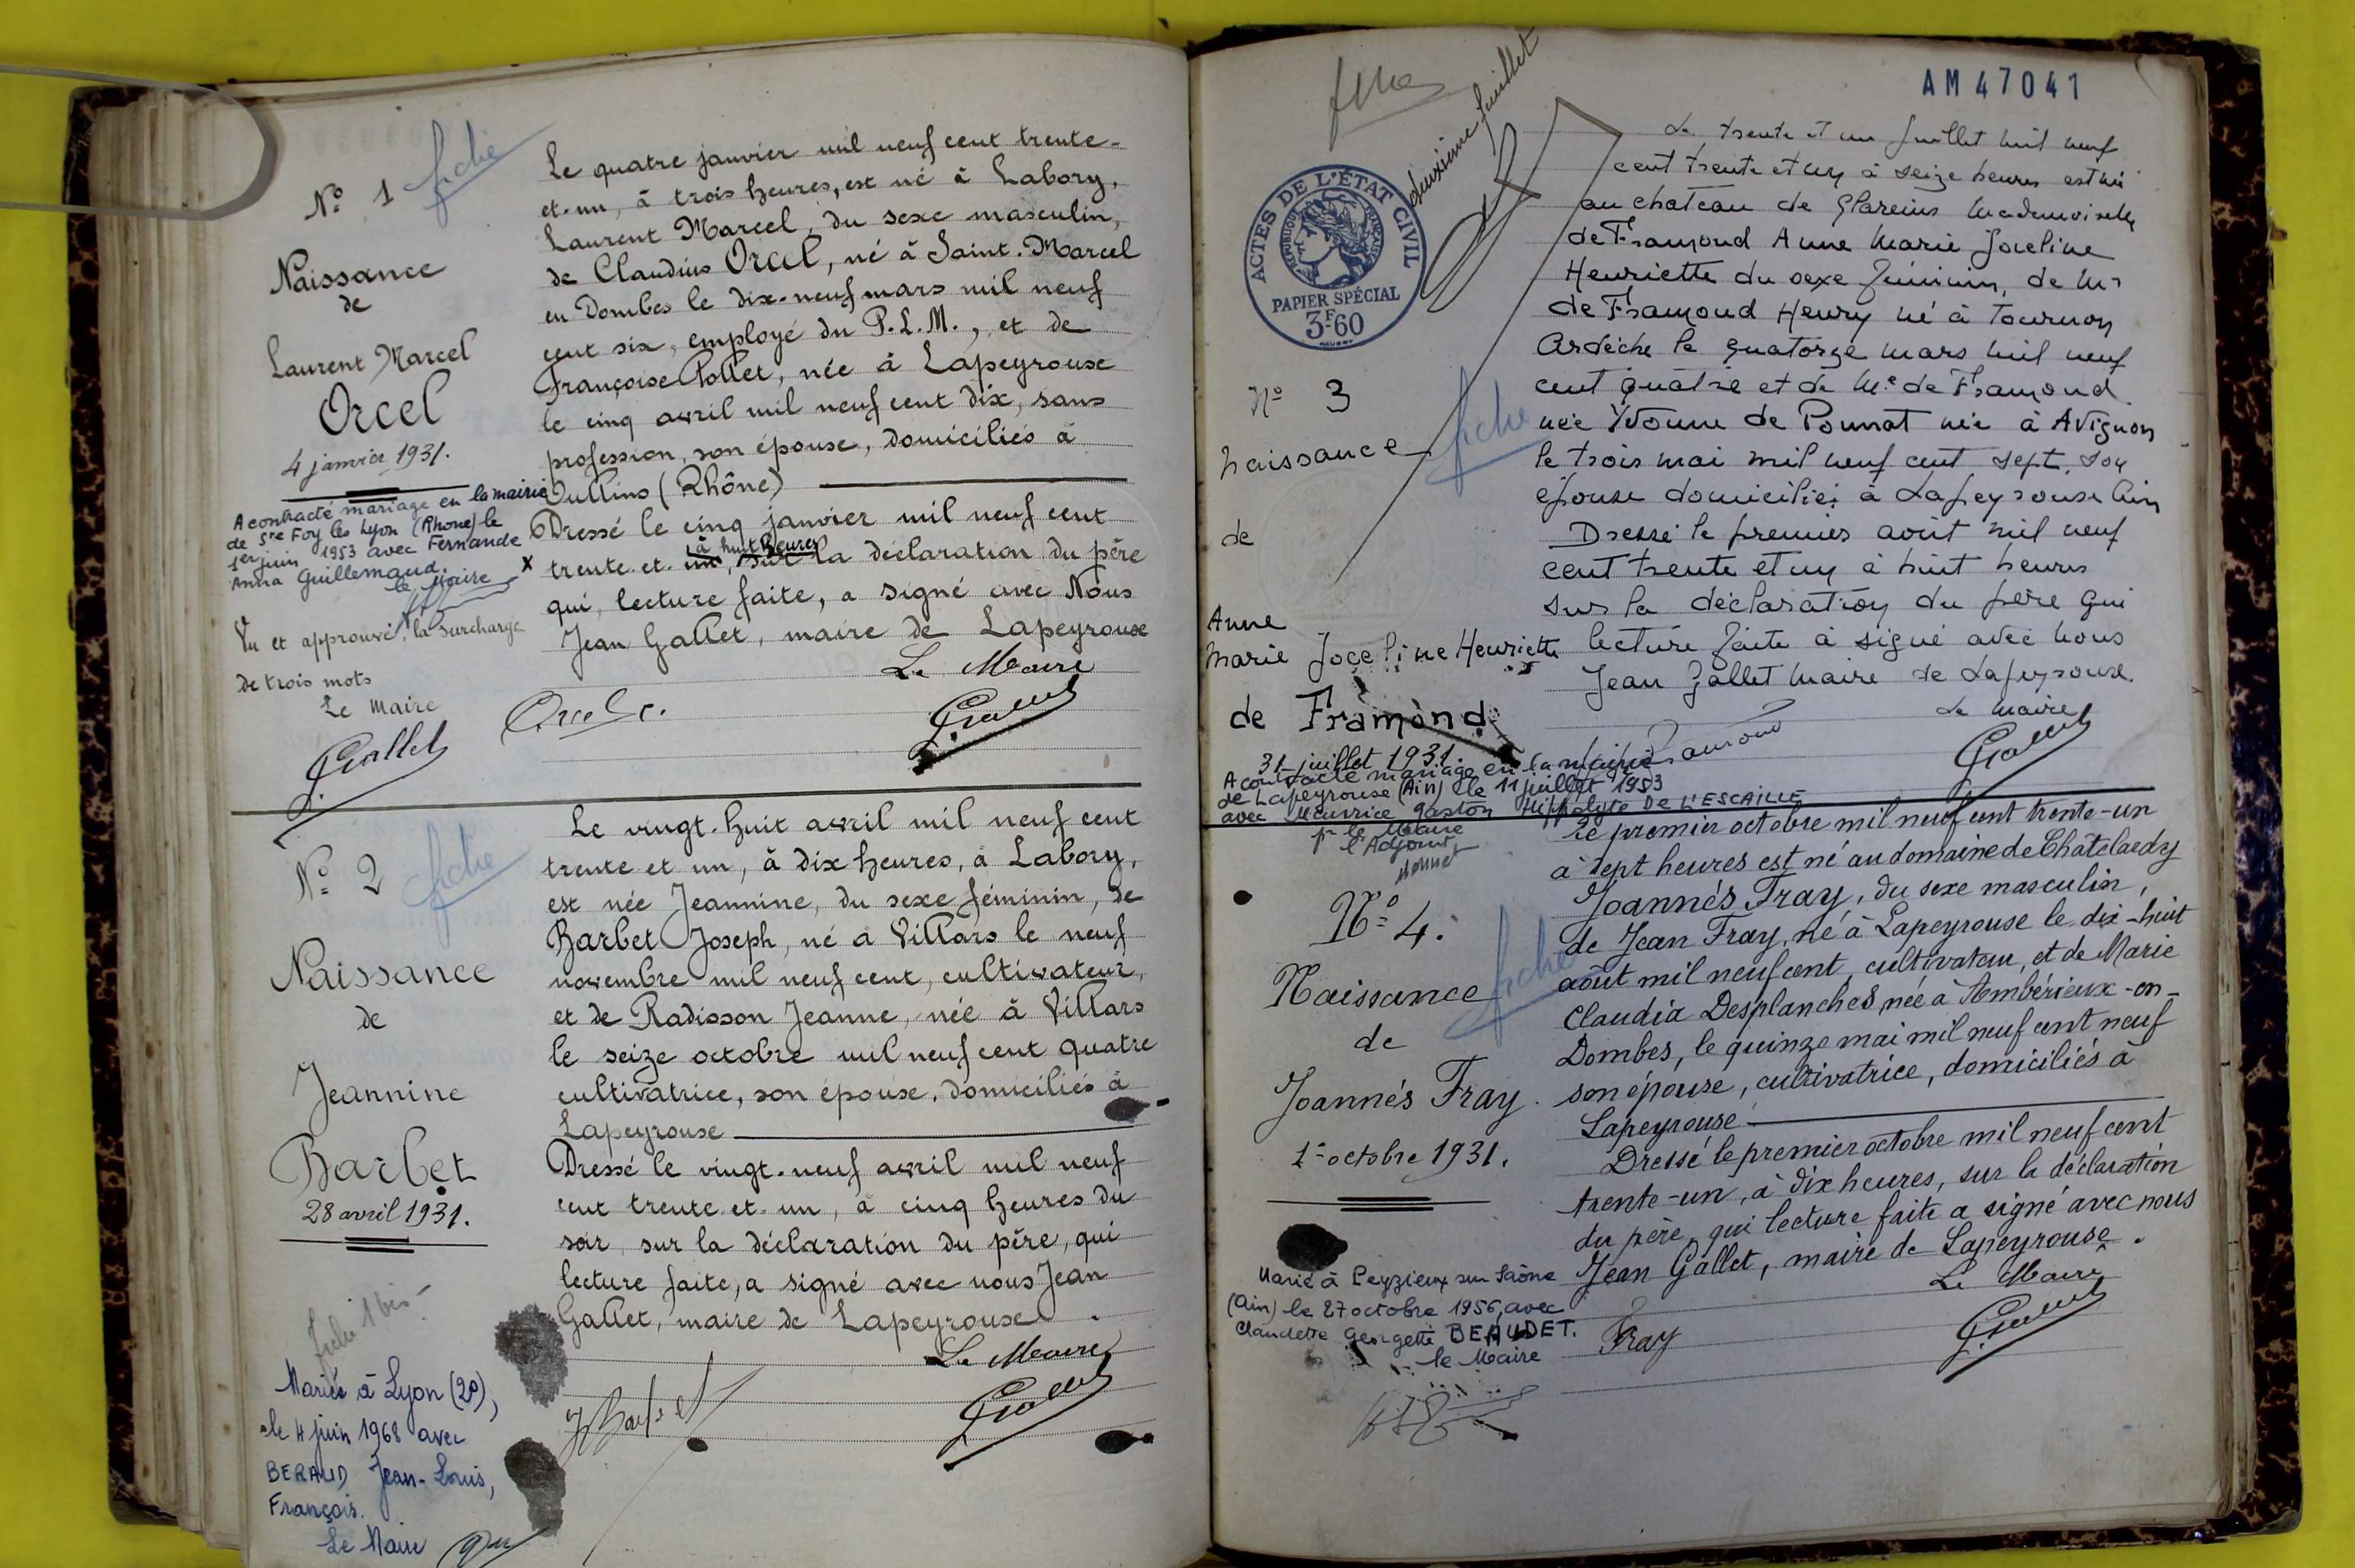 N° 1
fiche
Naissance
de
Laurent Marcel
Orcel
4 janvier 1931.
A contracté mariage en la mairie
de Ste Foy les Lyon (Rhone) le
1er juin 1953 avec Fernande
Anna Guillemaud.
le Maire
Vu et approuvé la surcharge
de trois mots
Le Maire
Gallet
Le quatre janvier mil neuf cent trente-
et-un, à trois heures, est né à Labory,
Laurent Marcel, du sexe masculin,
de Claudius Orcel, né à Saint-Marcel
en Dombes le dix-neuf mars mil neuf
cent six, employé du P.L.M., et de
Françoise Pollet, née à Lapeyrouse
le cinq avril mil neuf cent dix, sans
profession, son épouse, domiciliés à
Oullins (Rhône)
Dressé le cinq janvier mil neuf cent
à huit heures
x trente-et-un, sur la déclaration du père
qui, lecture faite, a signé avec Nous
Jean Gallet, maire de Lapeyrouse
Le Maire
Orcel c.
Gallet
N° 2
fiche
Naissance
de
Jeannine
Barbet
28 avril 1931.
fiche 1 bis
Mariée à Lyon (2e),
le 4 juin 1968 avec
BERAUD Jean-Louis,
François.
Le Maire
Le vingt-huit avril mil neuf cent
trente et un, à dix heures, à Labory,
est née Jeannine, du sexe féminin, de
Barbet Joseph, né à Villars le neuf
novembre mil neuf cent, cultivateur,
et de Radisson Jeanne, née à Villars
le seize octobre mil neuf cent quatre
cultivatrice, son épouse, domiciliés à
Lapeyrouse
Dressé le vingt-neuf avril mil neuf
cent trente-et-un, à cinq heures du
soir, sur la déclaration du père, qui
lecture faite, a signé avec nous Jean
Gallet, maire de Lapeyrouse.
Le Maire
J Barbet
Gallet
AM47041
deuxième feuillet
ACTES DE L'ÉTAT CIVIL
RÉPUBLIQUE FRANÇAISE
PAPIER SPÉCIAL
3F60
N° 3
fiche
naissance
de
Anne
Marie Joceline Henriette
de Framond
31 juillet 1931.
A contracté mariage en la mairie
de Lapeyrouse (Ain) le 11 juillet 1953
avec Maurice Gaston Hippolyte DE L'ESCAILLE
Pr le Maire
l'Adjoint
Le trente et un Juillet mil neuf
cent trente et un à seize heures est né
au chateau de Glareins Mademoiselle
de Framond Anne Marie Joceline
Henriette du sexe féminin, de Mr
de Framond Henry né à Tournon
Ardèche le quatorze mars mil neuf
cent quatre et de Me de Framond
née Yvonne de Ponnat née à Avignon
le trois mai mil neuf cent sept, son
épouse domiciliés à Lapeyrouse Ain
Dressé le premier août mil neuf
cent trente et un à huit heures
sur la déclaration du père qui
lecture faite à signé avec nous
Jean Gallet Maire de Lapeyrouse.
Le Maire
Framond
Gallet
N° 4.
fiche
Naissance
de
Joannés Fray.
1er octobre 1931.
Marié à Peyzieux sur Saône
(Ain) le 27 octobre 1956, avec
Claudette Georgette BEAUDET.
le Maire
Le premier octobre mil neuf cent trente-un
à sept heures est né au domaine de Chatelardy
Joannés Fray, du sexe masculin,
de Jean Fray, né à Lapeyrouse le dix-huit
août mil neuf cent, cultivateur, et de Marie
Claudia Desplanches, née à Ambérieux-en-
Dombes, le quinze mai mil neuf cent neuf
son épouse, cultivatrice, domiciliés à
Lapeyrouse
Dressé le premier octobre mil neuf cent
trente-un, à dix heures, sur la déclaration
du père, qui lecture faite a signé avec nous
Jean Gallet, maire de Lapeyrouse.
Le Maire
Fray
Gallet